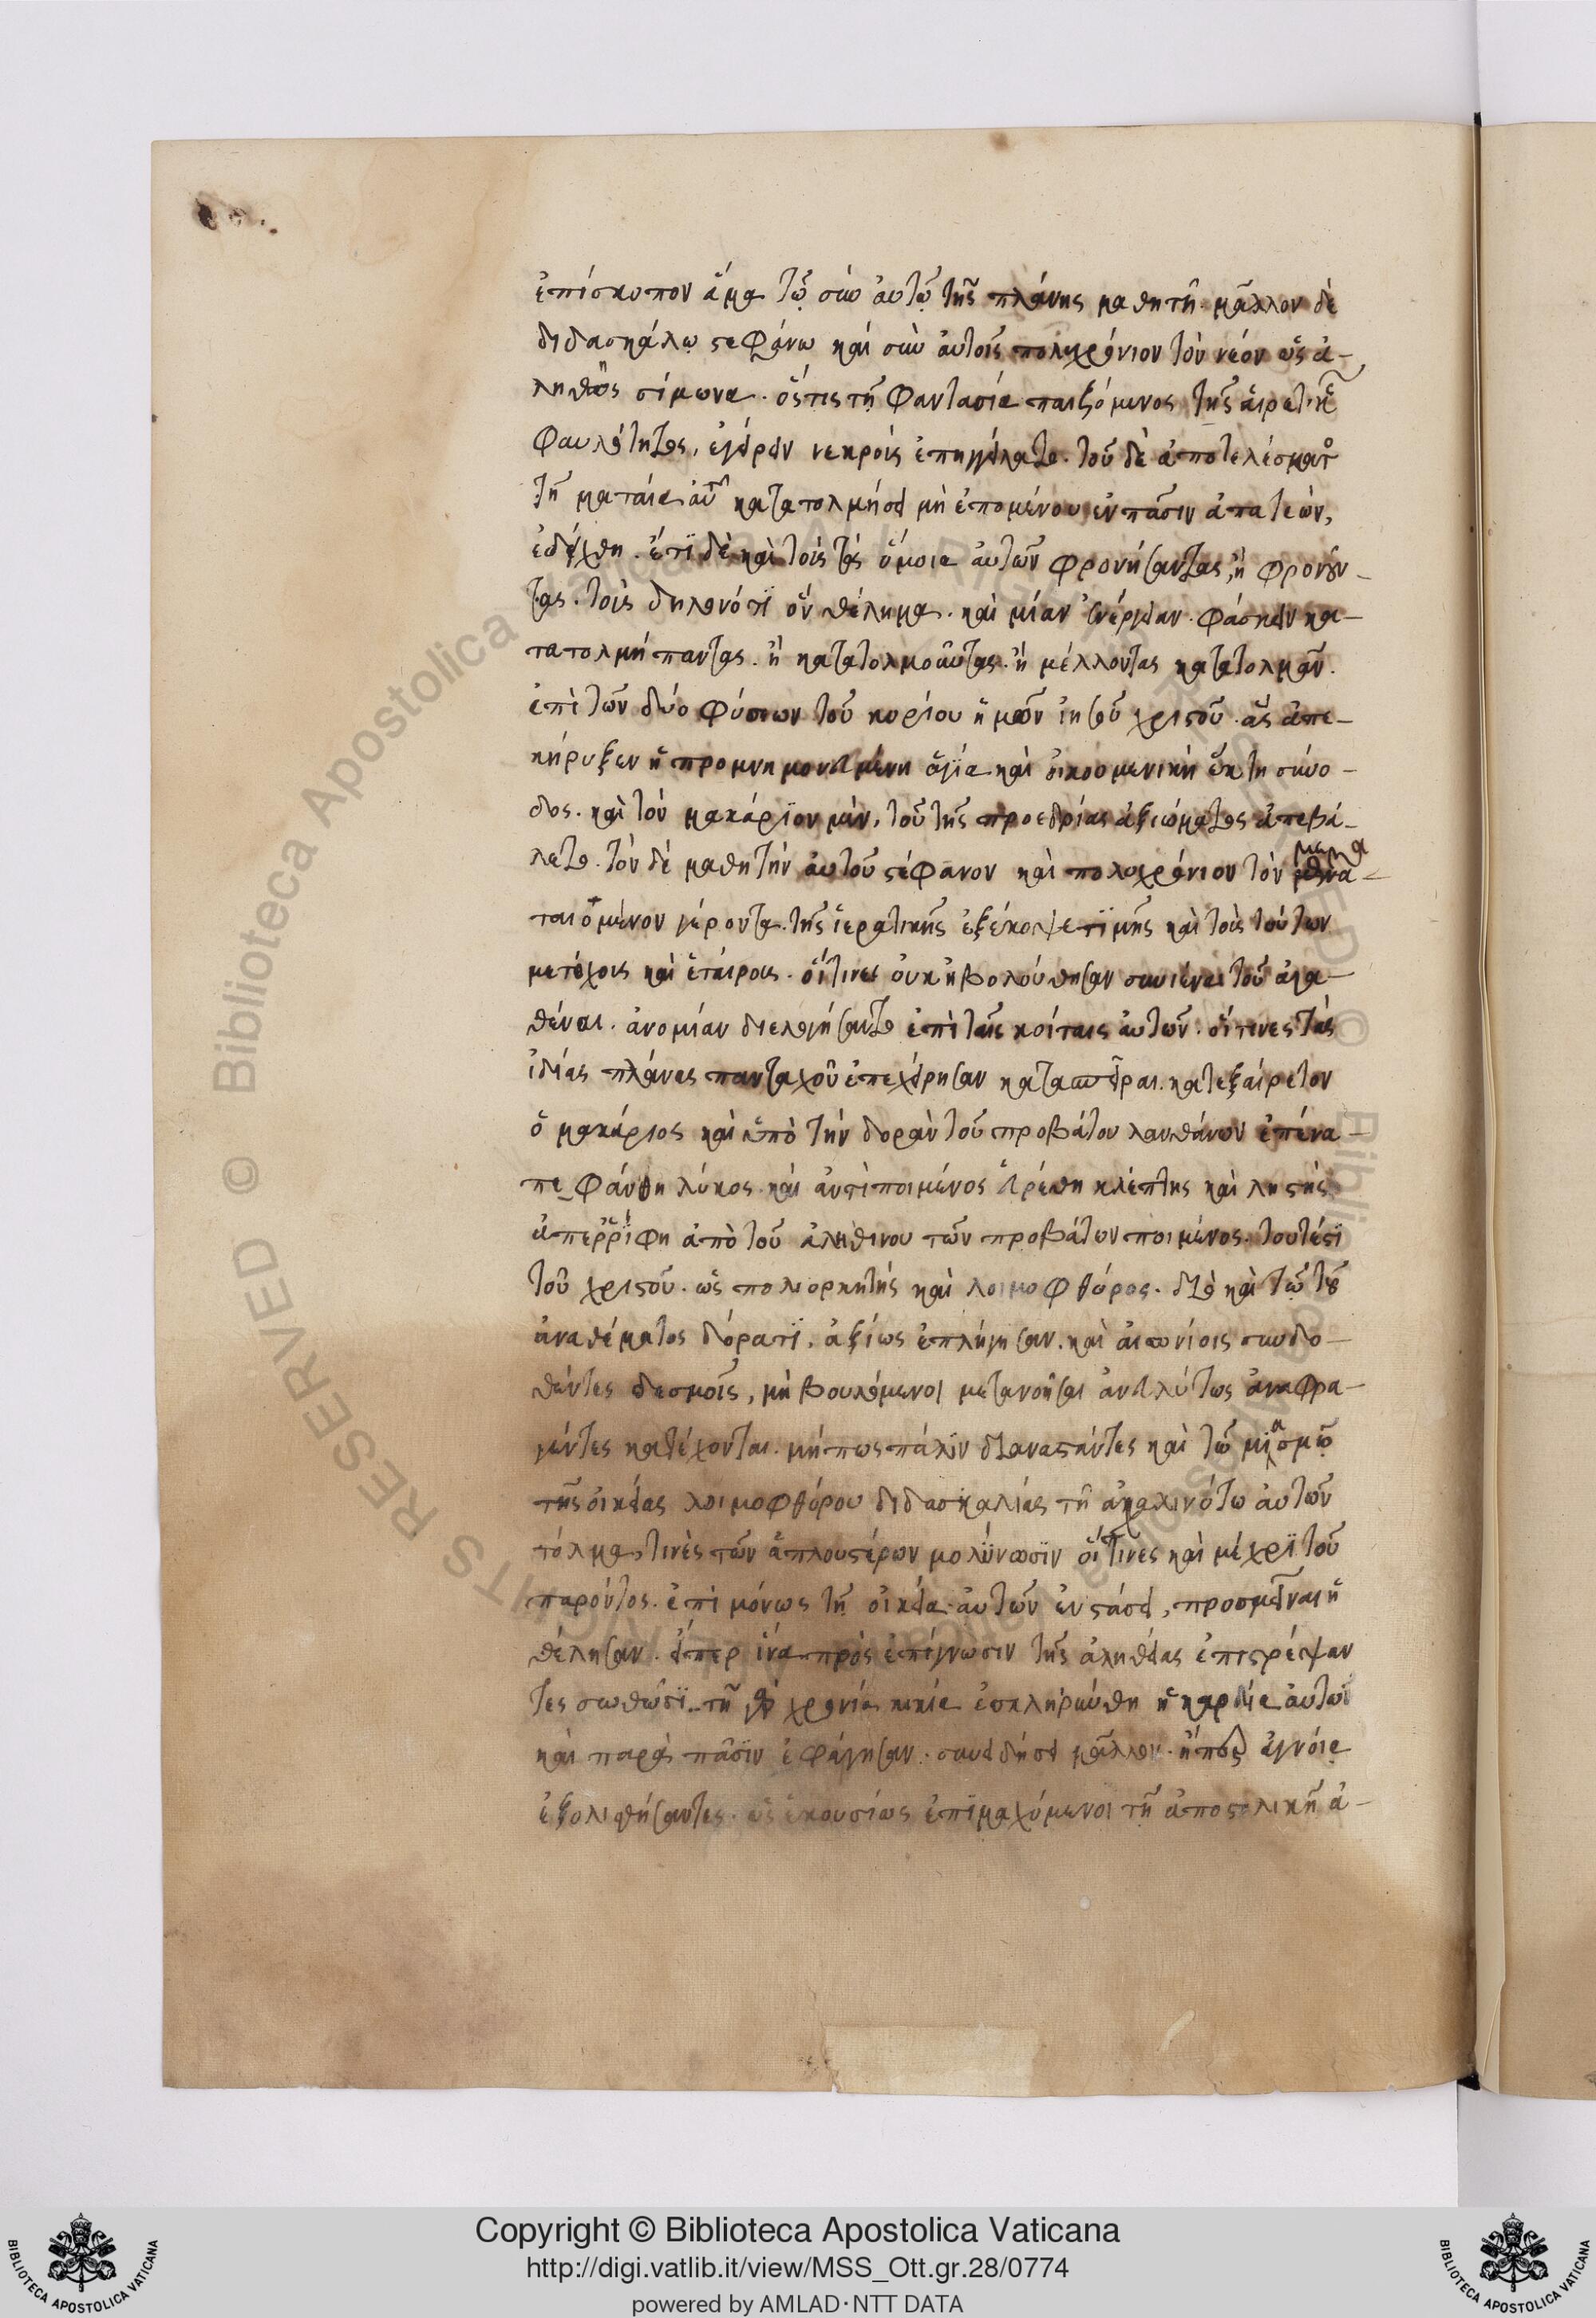 ἐπίσκοπον ἅμα τῷ σὺν αὐτῷ τῆς πλάνης μαθητῇ. μᾶλλον δὲ
διδασκάλῳ στεφάνω καὶ σὺν αὐτοῖς πολυχρόνιον τὸν νέον ὡς ἀ-
ληθῶς σίμωνα. ὅστις τῆ φαντασία παιζόμενος τῆς αἱρετικῆς
φαυλότητος, ἐγείρειν νεκροὺς ἐπηγγείλατο. τοῦ δὲ ἀποτελέσματος
τῆ ματαία αὐτοῦ κατατολμήσει μὴ ἑπομένου ἐν πᾶσιν ἀπατεὼν,
ἐδείχθη. ἔτι δὲ καὶ τοὺς τὰ ὅμοια αὐτῶν φρονήσαντας, ἢ φρονοῦν-
τας. τοὺς δηλονότι ἓν θέλημα. καὶ μίαν ἐνέργειαν. φάσκειν κα-
τατολμήσαντας. ἢ κατατολμοῦντας. ἢ μέλλοντας κατατολμᾶν.
ἐπὶ τῶν δύο φύσεων τοῦ κυρίου ἡμῶν ἰησοῦ χριστοῦ. οὓς ἀπε-
κήρυξεν ἡ προμνημονευομένη ἁγία καὶ οἰκουμενικὴ ἕκτη σύνο-
δος. καὶ τὸν μακάριον μὲν, τοῦ τῆς προεδρίας ἀξιώματος ἀπεβά-
λετο. τὸν δὲ μαθητὴν αὐτοῦ στέφανον καὶ πολυχρόνιον τὸν
ταιούμενον γέροντα. τῆς ἱερατικῆς ἐξέκοψε τιμῆς καὶ τοὺς τούτων
μετόχους καὶ ἑταίρους. οἵτινες οὐκ ἠβολούθησαν συνιέναι τοῦ ἀγα-
θύναι. ἀνομίαν διελογήσαντο ἐπὶ ταῖς κοίταις αὐτῶν. οἵτινες τὰς
ἰδίας πλάνας πανταχοῦ ἐπεχείρησαν κατασπεῖραι. κατεξαίρετον
ὁ μακάριος καὶ ὑπὸ τὴν δορὰν τοῦ προβάτου λανθάνων
πεφάνθη λύκος. καὶ ἀντὶ ποιμένος εὑρέθη κλέπτης καὶ ληστής
ἀπερρίφη ἀπὸ τοῦ ἀληθινοῦ τῶν προβάτων ποιμένος. τουτέστι
τοῦ χριστοῦ. ὡς πολιορκητὴς καὶ λοιμοφθόρος. διὸ καὶ τῷ τοῦ
ἀναθέματος δόρατι, ἀξίως ἐπλήγησαν. καὶ αἰωνίοις συνδο-
θέντες δεσμοῖς, μὴ βουλόμενοι μετανοῆσαι ἀνευλύτως ἀναφρα-
γέντες κατέχονται. μήπως πάλιν διαναστάντες καὶ τῶ μιασμῷ
τῆς οἰκείας λοιμοφθόρου διδασκαλίας τῆ ἀχαλινότω αὐτῶν
τόλμα, τινὲς τῶν ἁπλουστέρων μολύνωσιν οἵτινες καὶ μέχρι τοῦ
παρόντος. ἐπὶ μόνως τῆ οἰκεία αὐτῶν ἐνστάσει, προσμεῖναι ἠ
θέλησαν. εἴπερ ἵνα πρὸς ἐπίγνωσιν τῆς ἀληθείας ἐπιστρέψαν
τες σωθῶσι. τῆ χρονία κακία ἐσκληρύνθη ἡ καρδία αὐτῶν
καὶ παρὰ πᾶσιν ἐφάγησαν. συνειδήσει μᾶλλον. ἀγνοία
ἐξολισθήσαντες. ὡς ἑκουσίως ἐπιμαχόμενοι τῆ ἀποστολικῆ ἀ-
Copyright © Biblioteca Apostolica Vaticana
http://digi.vatlib.it/view/MSS_Ott.gr.28/0774
powered by AMLAD·NTT DATA